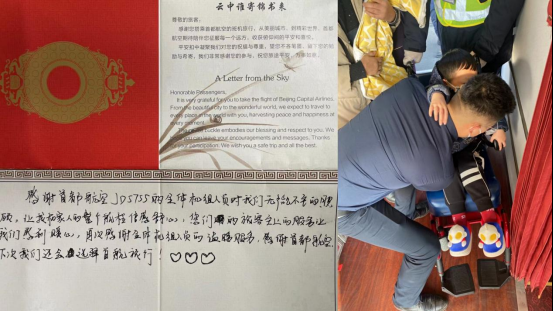 云中谁寄锦书来
尊敬的旅客:
感谢您搭乘首都航空的班机旅行,
A Letter from the Sky
Honorable Passengers,
It is very grateful for you to take the flight of Beijing Capital Airlines.
From the beautiful city to the wonderful world, we expect to travel to
every place in the world with you, harvesting peace and happiness at
every moment.
buckle embodies our blessing and respect to you. We
you can leave your encouragements and messages. Thanks
for your participation. We wish you a safe trip and all the best.
感谢首都航空JD5755的全体机组人员对我们无微不至的照
顾,让我和家人的整个航程倍感舒心,您们的
我们感到暖心,再次感谢全体机组人员的温暖服务,感谢首都航空
下次我们还会选择首航旅行!♡♡♡